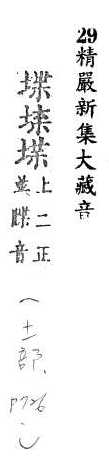 29精嚴新集大藏音
堞
上二正
並牒音
(土部、P726)